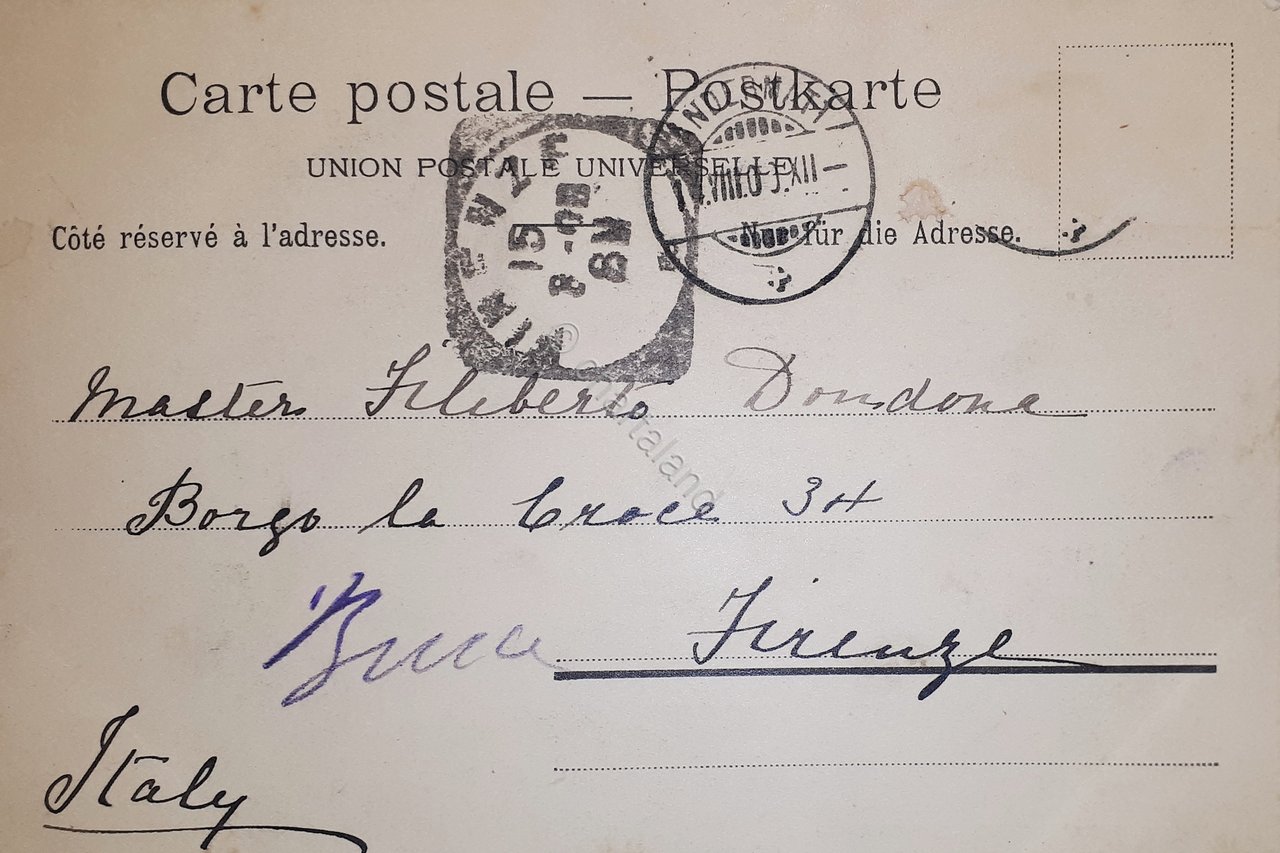 Carte postale — Postkarte
UNION POSTALE UNIVERSELLE
Côté réservé à l'adresse.
Nur für die Adresse.
FIRENZE
15
8-
8M
ANDERMATT
VIII.0
XII—
Master Filiberto Dondona
Borgo la Croce 34
Buca
Firenze
Italy